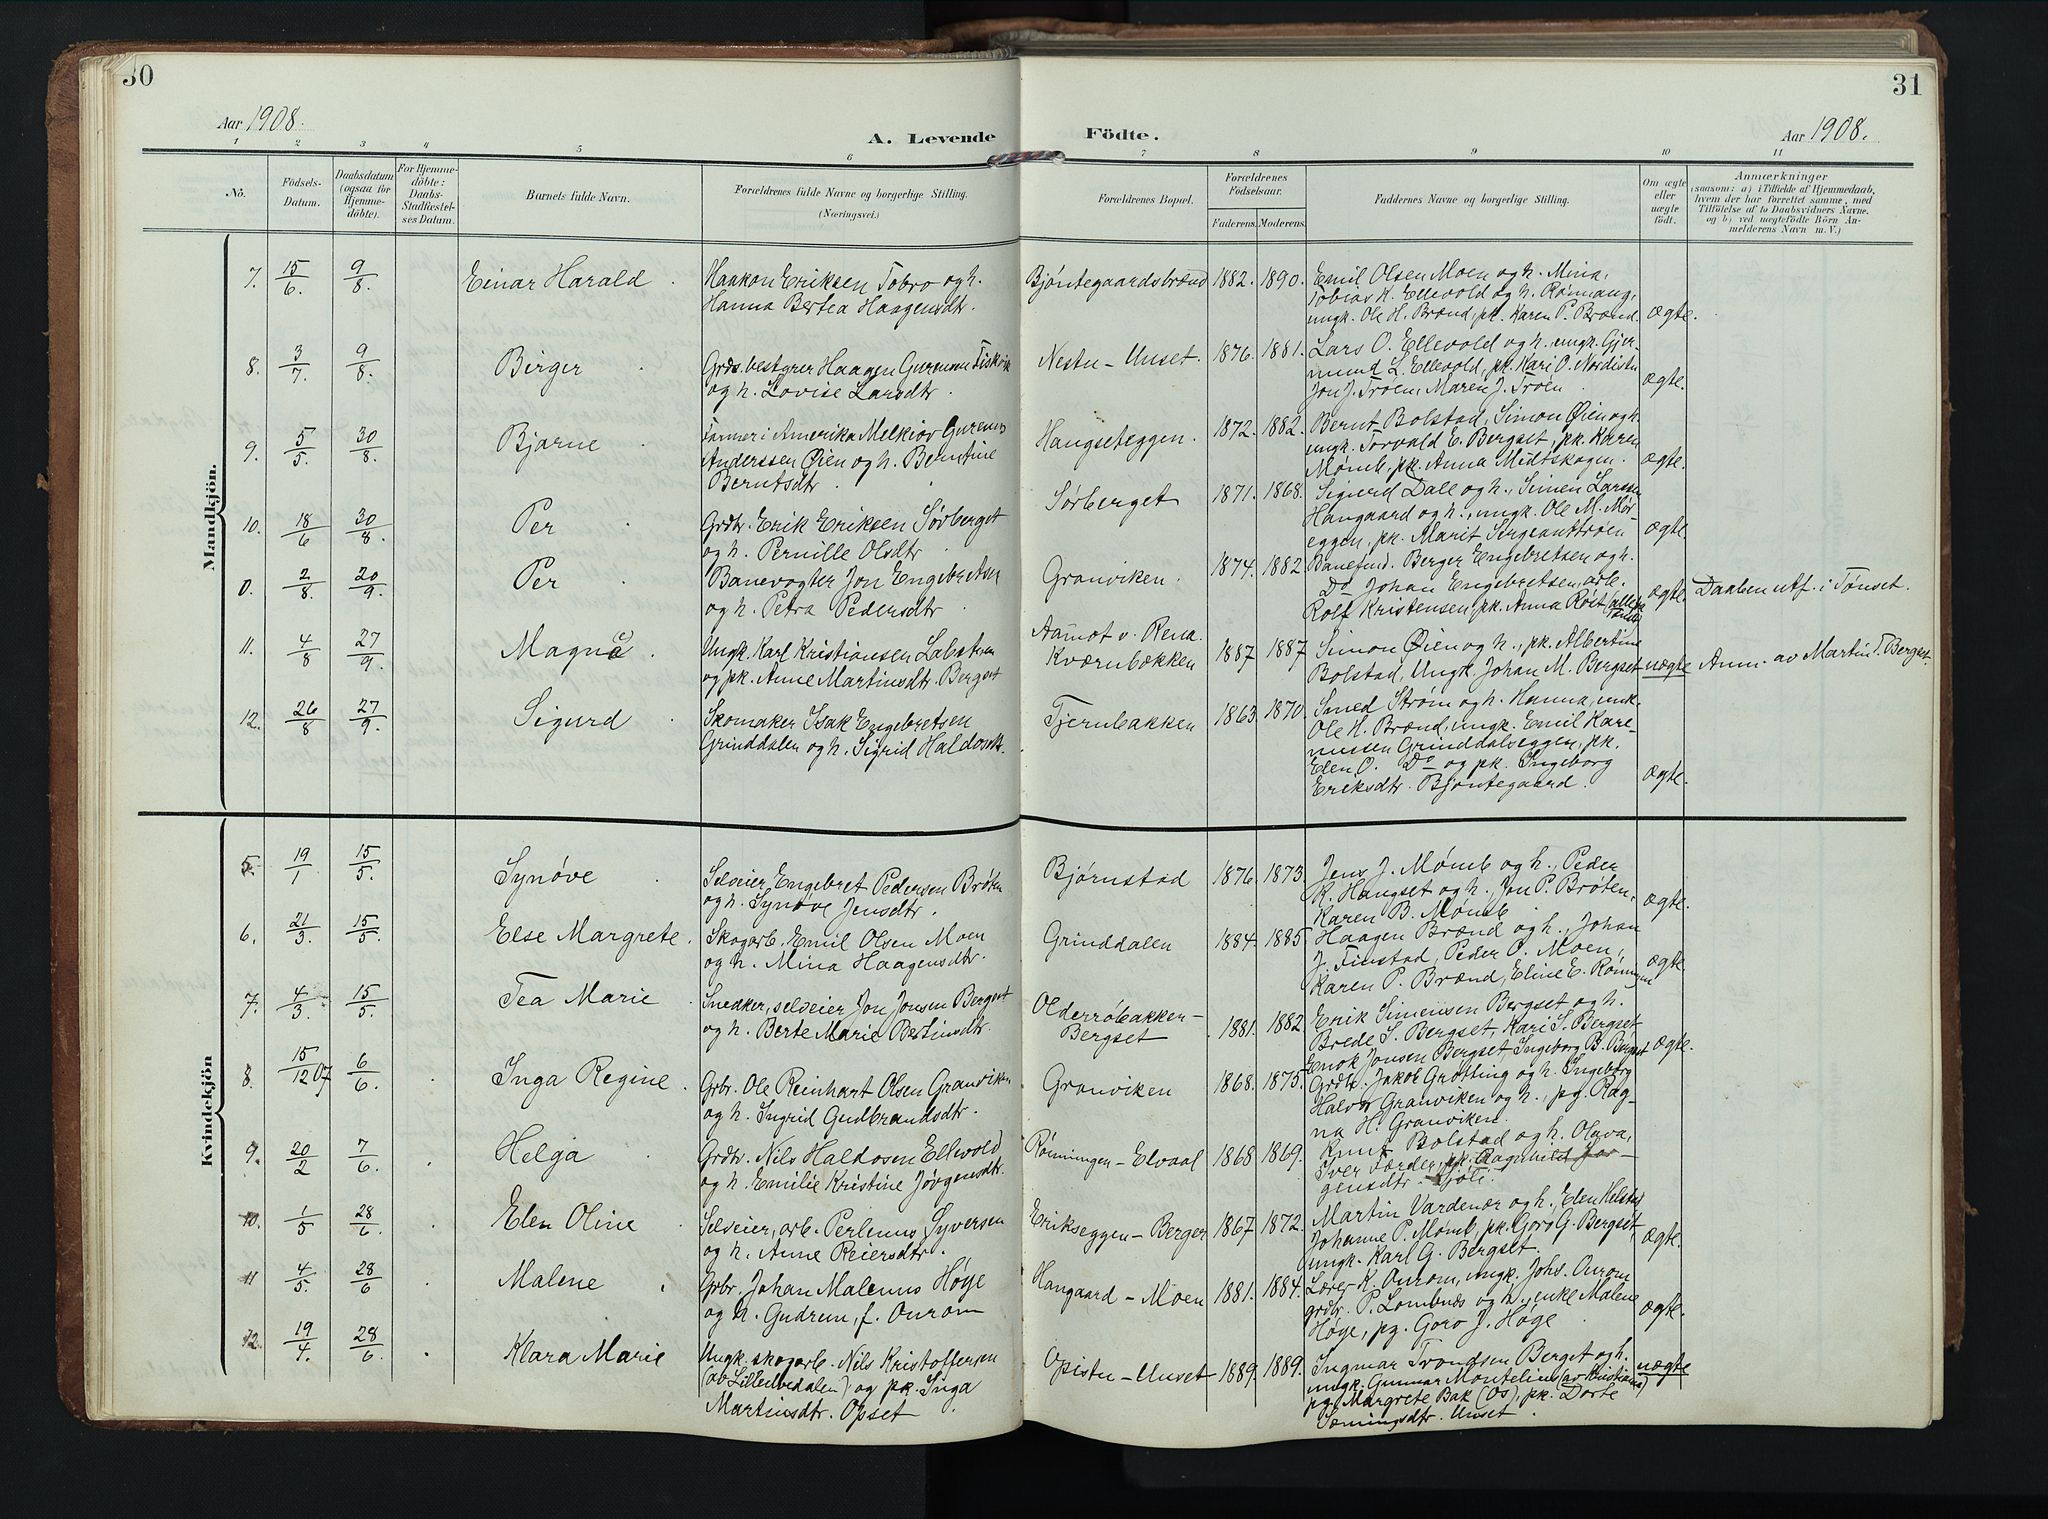 30
Aar 1908.
A. Levende
Födte.
Aar 1908.
31
1 2 3 4 5 6 7 8 9 10 11
No.
Födsels-
Datum.
Daabsdatum
(ogsaa for
Hjemme-
döbte).
For Hjemme-
döbte:
Daabs-
Stadfæstel-
ses Datum.
Barnets fulde Navn.
Forældrenes fulde Navne og borgerlige Stilling.
(Næringsvei.)
Forældrenes Bopæl.
Forældrenes
Födselsaar.
Faderens. Moderens.
Faddernes Navne og borgerlige Stilling.
Om ægte
eller
uægte
födt.
Anmærkninger
(saasom: a) i Tilfælde af Hjemmedaab,
hvem der har forrettet samme, med
Tilföielse af to Daabsvidners Navne.
og b) ved uægtefödte Börn An-
melderens Navn m. V.)
Mandkjön.
7. 15/6 9/8 Einar Harald
Haakon Eriksen Tobro og h.
Hanna Bertea Haagensdtr.
Bjøntegaardsbrænd 1882. 1890.
Emil Olsen Moen og h. Mina,
Tobias K. Ellevold og h. Rønnaug,
ungk. Ole H. Brænd, pk. Karen P. Brænd. ægte.
8. 3/7 9/8 Birger
Grds.bestyrer Haagen Gurenus Fiskvik
og h. Lovise Larsdtr.
Nestu-Unset. 1876. 1881.
Lars O. Ellevold og h. ungk. Gjer-
mund L. Ellevold, pk. Kari O. Nordistu
Jon J. Troen, Maren J. Troen. ægte.
9. 5/5 30/8 Bjarne
Farmer i Amerika Melkior Gurenus
Anderssen Øien og h. Berntine
Berntsdtr.
Hangseteggen. 1872. 1882.
Bernt Bolstad, Simon Øien og h.
ungk. Torvald E. Bergset, pk. Karen
Mømb, pk. Anna Midtskogen. ægte.
10. 18/6 30/8 Per
Grdbr. Erik Eriksen Sørberget
og h. Pernille Olsdtr.
Sørberget 1871. 1868.
Sigurd Dall og h., Simen Larsen
Haugaard og h., ungk. Ole M. Mør-
eggen, pk. Marit Sergeanttrøen ægte.
0. 2/8. 20/9. Per
Banevogter Jon Engebretsen
og h. Petra Pedersdtr.
Granviken. 1874. 1882
Banefmd. Berger Engebretsen og h.
Do Johan Engebretsen, arb.
Rolf Kristensen, pk. Anna Røst ægte.
Daaben utf. i Tønset.
11. 4/8 27/9. Magne
Ungk. Karl Kristiansen Labstuen
og pk. Anne Martinsdtr. Bergset
Aamot v. Rena.
Kværnbækken 1887 1887
Simon Øien og h., pk. Albertine
Bolstad, Ungk. Johan M. Bergset uægte
Anm. av Martin T. Bergset.
12. 26/8 27/9. Sigurd
Skomaker Isak Engebretsen
Grinddalen og h. Sigrid Haldosdtr.
Tjernbakken 1863 1870.
Smed Strøm og h. Hanna, unk.
Ole H. Brænd, ungk. Emil Kare-
nussen Grinddalseggen, pk.
Elen O. Do og pk. Ingeborg
Eriksdtr. Bjøntegaard. ægte.
Kvindekjön
5. 19/1 15/5. Synøve
Selveier Engebret Pedersen Brøten
og h. Synøve Jensdtr.
Bjørnstad 1876. 1873.
Jens J. Mømb og h., Peder
K. Hangset og h., Jon P. Brøten,
Karen B. Mømb ægte.
6. 21/3. 15/5. Else Margrete.
Skogarb. Emil Olsen Moen
og h. Mina Haagensdtr.
Grinddalen 1884. 1885.
Haagen Brænd og h., Johan
J. Finstad, Peder O. Moen,
Karen P. Brænd, Eline E. Rønningen ægte.
7. 4/3. 15/5. Tea Marie
Snedker, selveier Jon Jonsen Bergset
og h. Berte Marie Bertinsdtr.
Olderrøbakken-
Bergset 1881. 1882
Erik Simensen Bergset og h.
Brede S. Bergset, Kari S. Bergset
Enok Jonsen Bergset, Ingeborg B. Bergset ægte.
8. 15/12 07 6/6 Inga Regine.
Grbr. Ole Reinhart Olsen Granviken
og h. Ingrid Gudbrandsdtr.
Granviken 1868. 1875.
Grdbr. Jakob Grøtting og h. Ingeborg
Halvor Granviken og h., pg. Rag-
na H. Granviken.
9. 20/2 7/6. Helga
Grdbr. Nils Haldosen Ellevold
og h. Emilie Kristine Jørgensdtr.
Rønningen-Elvaal 1868 1869.
Knut Bolstad og h. Olava,
Iver Færder, pk. Ragnhild Jør-
gensdtr.
10. 1/5 28/6. Elen Oline
Selveier, arb. Perlenus Syversen
og h. Anne Reiersdtr.
Erikseggen-Berger 1867 1872.
Martin Vardenær og h., Elen Kelstad
Johanne P. Mømb, pk. Goro G. Bergset,
ungk. Karl G. Bergset. ægte.
11 4/5. 28/6 Malene
Grbr. Johan Malenus Høye
og h. Gudrun, f. Ourom
Haugaard-Moen 1881. 1884.
Lærer K. Ourom, ungk. Johs. Ourom
grdbr. P. Lombnæs og h., enke Malene
Høye, pg. Goro J. Høye. ægte.
12. 19/4. 28/6. Klara Marie
Ungk. skogarb. Nils Kristoffersen
(av Lilleelvedalen) og pk. Inga
Martinsdtr. Opset
Opistu-Unset 1889. 1889.
Ingmar Trondsen Berget og h.
ungk. Gunnar Montelius (av Kristiania)
pg. Margrete Bak (Os), pk. Dorte
Sæmingsdtr. Unset. uægte